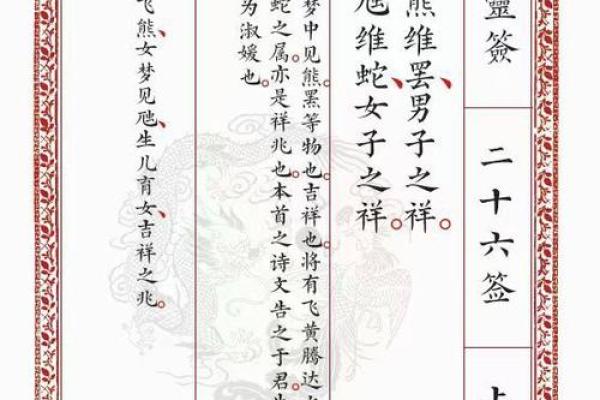 靈簽
二十六签
熊维罢、男子之祥。
虺维蛇、女子之祥。
梦中见熊、罴等物也。吉祥也。将有飞黄腾达
蛇之属、亦是祥兆也。本首之诗文告之于君
为淑媛也。
飞熊、女梦见虺、生儿育女、吉祥之兆。